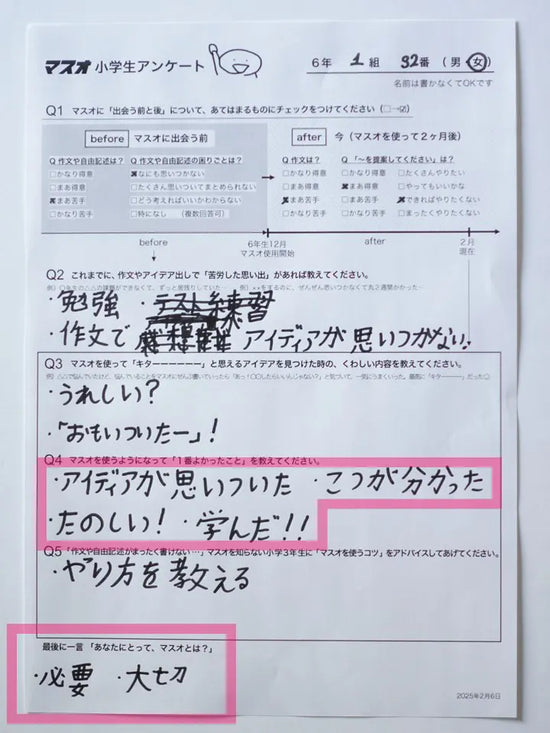 マスオ 小学生アンケート
6年 1組 32番 (男・女)
名前は書かなくてOKです
Q1 マスオに「出会う前と後」について、あてはまるものにチェックをつけてください(□→☑)
before マスオに出会う前
Q 作文や自由記述は?
□かなり得意
□まあ得意
☒まあ苦手
□かなり苦手
Q 作文や自由記述の困りごとは?
☒なにも思いつかない
□たくさん思いついてまとめられない
□どう考えればいいかわからない
□特になし (複数回答可)
after 今(マスオを使って2ヶ月後)
Q 作文は?
□かなり得意
□まあ得意
☒まあ苦手
□かなり苦手
Q 「〜を提案してください」は?
□かなり得意
☒まあ得意
□まあ苦手
□かなり苦手
□たくさんやりたい
□やってもいいかな
☒できればやりたくない
□まったくやりたくない
before
6年生12月
マスオ使用開始
after
2月
現在
Q2 これまでに、作文やアイデア出しで「苦労した思い出」があれば教えてください。
・勉強 ・練習
・作文で アイディアが思いつかない。
Q3 マスオを使って「キターーーーー」と思えるアイデアを見つけた時の、くわしい内容を教えてください。
・うれしい?
・「おもいついたー」!
Q4 マスオを使うようになって「1番よかったこと」を教えてください。
・アイディアが思いついた ・こつが分かった
・たのしい! ・学んだ!!
Q5「作文や自由記述がまったく書けない…」マスオを知らない小学3年生に「マスオを使うコツ」をアドバイスしてあげてください。
・やり方を教える
最後に一言「あなたにとって、マスオとは?」
・必要 ・大切
2025年2月6日